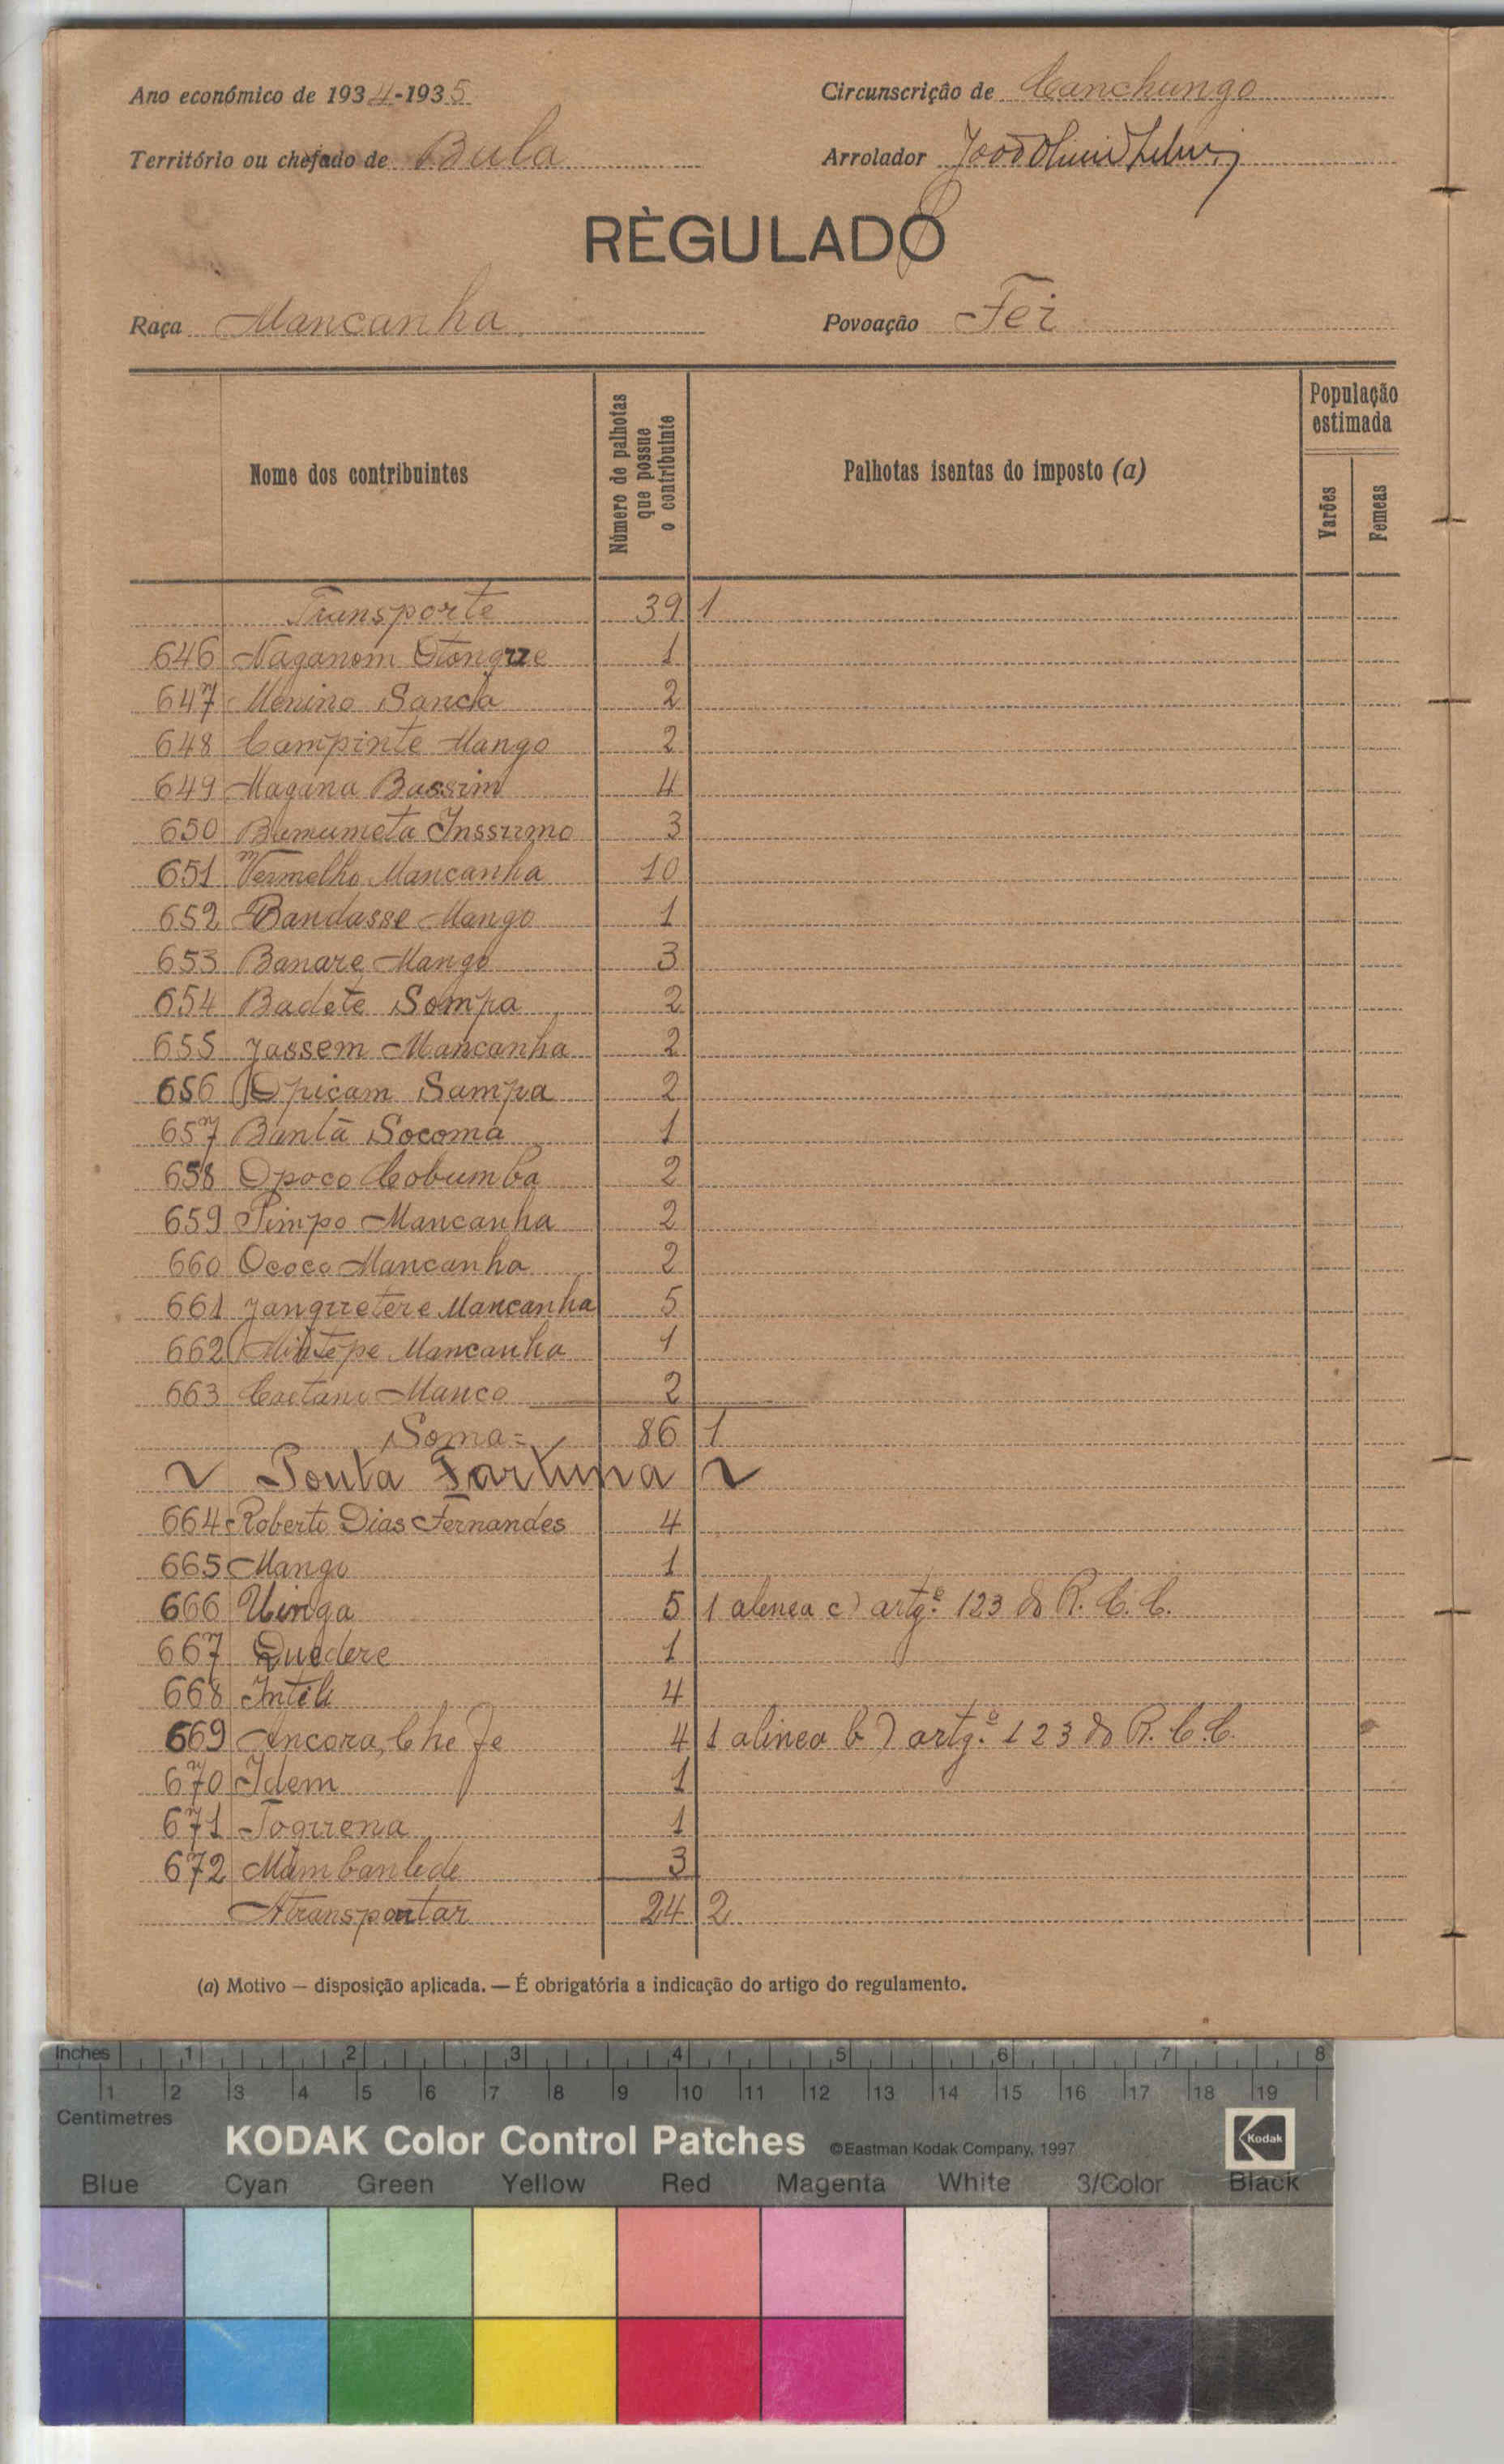 Ano económico de 1934-1935
Circunscrição de Canchungo
Território ou chefado de Bula
Arrolador João
RÈGULADO
Raça Mancanha
Povoação Fei
Nome dos contribuintes
Número de palhotas que possue o contribuinte
Palhotas isentas do imposto (a)
População estimada
Varões
Femeas
Transporte 39 1
646 Naganom Otongue 1
647 Menino Sancla 2
648 Campinte Mango 2
649 Magina Bassim 4
650 Bamumeta Inssumo 3
651 Vermelho Mancanha 10
652 Bandasse Mango 1
653 Banare Mango 3
654 Badete Sompa 2
655 Jassem Mancanha 2
656 Opicam Sampa 2
657 Bantã Socoma 1
658 Opoco Cobumba 2
659 Pimpo Mancanha 2
660 Ococo Mancanha 2
661 Janguetere Mancanha 5
662 Mancanha 1
663 Caetano Manco 2
Soma= 86 1
Ponta Fartuna
664 Roberto Dias Fernandes 4
665 Mango 1
666 Uinga 5 1 alenea c) artgº 123 do R. C. C.
667 Quedere 1
668 Inteli 4
669 Ancora, Chefe 4 1 alinea b) artgº 123 do R. C. C.
670 Idem 1
671 Toguena 1
672 Mambanlede 3
Atransportar 24 2
(a) Motivo — disposição aplicada. — É obrigatória a indicação do artigo do regulamento.
Inches 1 2 3 4 5 6 7 8
1 2 3 4 5 6 7 8 9 10 11 12 13 14 15 16 17 18 19
Centimetres
KODAK Color Control Patches ©Eastman Kodak Company, 1997 Kodak
Blue Cyan Green Yellow Red Magenta White 3/Color Black